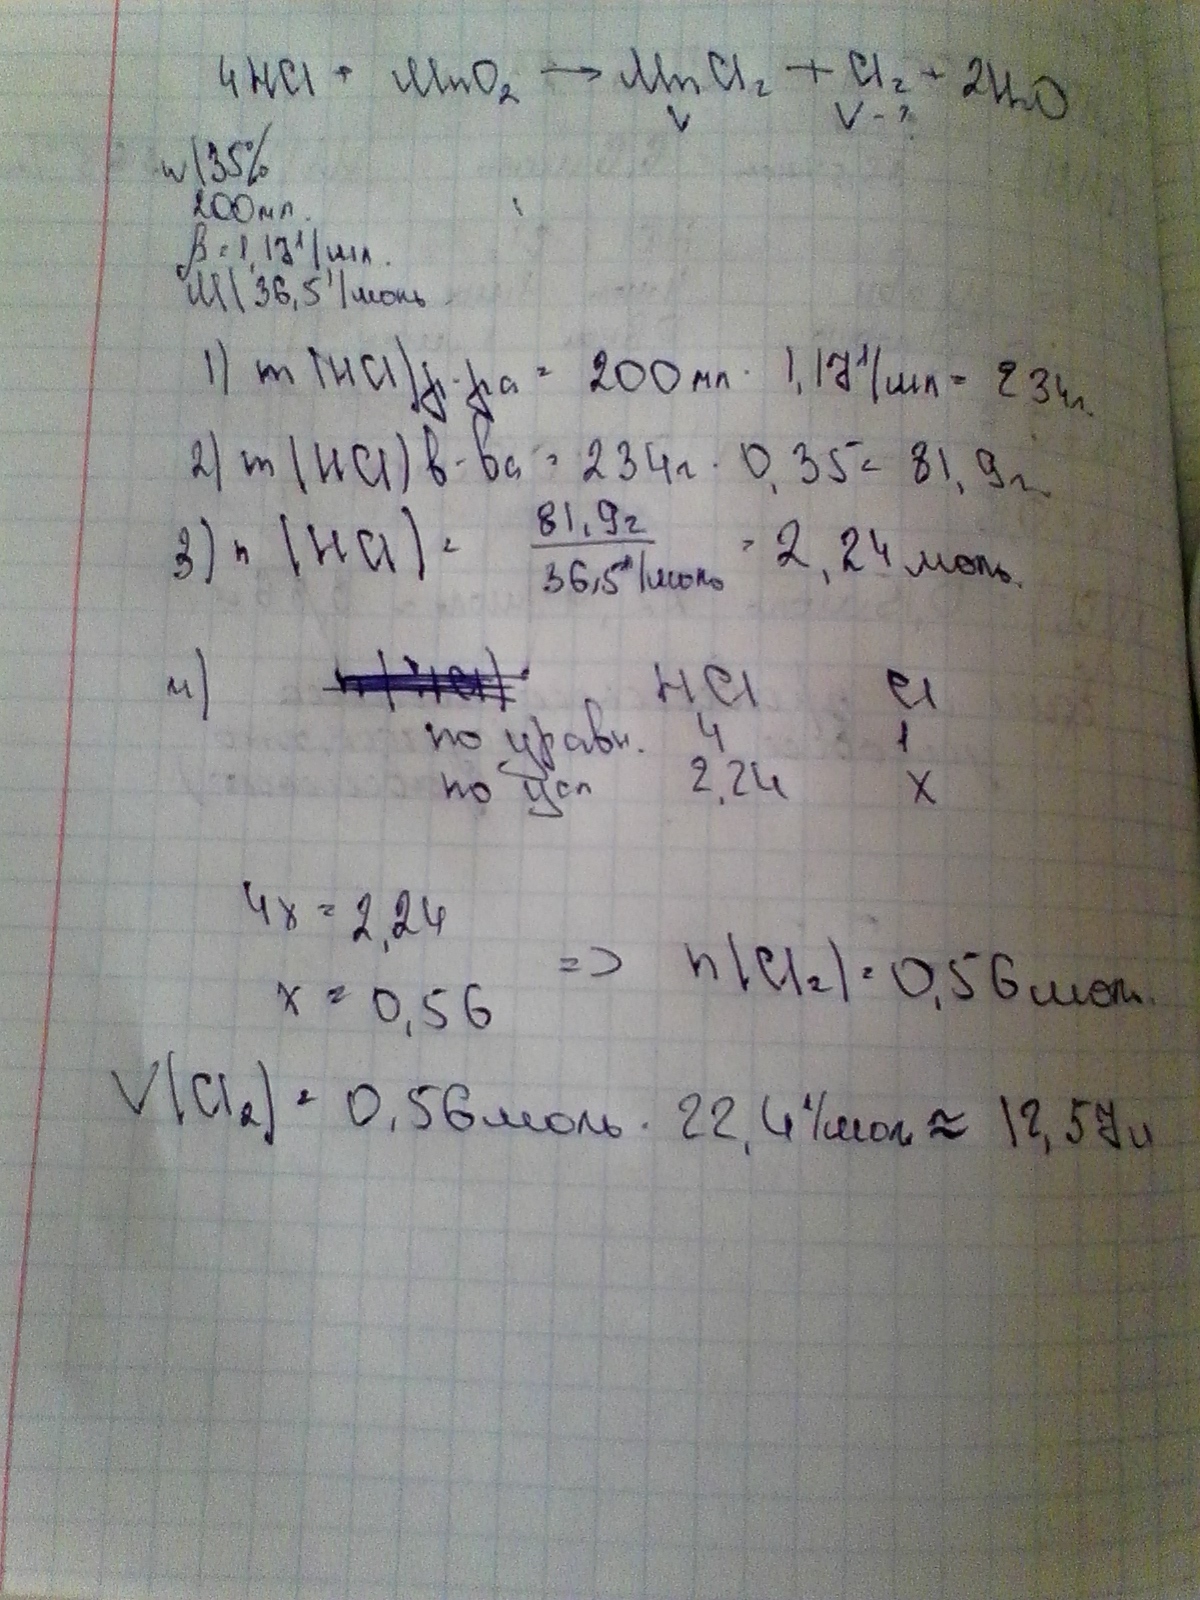 4HCl + MnO₂ → MnCl₂ + Cl₂ + 2H₂O
V V - ?
w(35%
200 мл.
ρ = 1,17 г/мл.
M( 36,5 г/моль
1) m (HCl) р-ра = 200 мл · 1,17 г/мл = 234 г.
2) m (HCl) в-ва = 234 г · 0,35 = 81,9 г.
3) n (HCl) = 81,9 г / 36,5 г/моль = 2,24 моль.
4) HCl Cl
по уравн. 4 1
по усл 2,24 x
4x = 2,24
x = 0,56 => n(Cl₂) = 0,56 моль.
V(Cl₂) = 0,56 моль · 22,4 л/моль ≈ 12,57 л